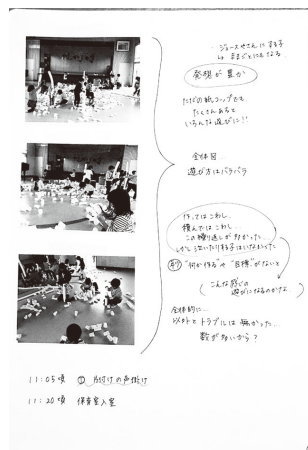 ・ジュースやさんにする子
↳ ままごとにもなる
発想が豊か
ただの紙コップでも
たくさんあると
いろんな遊びに!!
全体図
遊び方はバラバラ
作ってはこわし
積んではこわし
この繰り返しが多かった
しかし泣いたりする子はいなかった
"何か作る"や"目標"がないと
こんな感じの
遊びになるのかな…
全体的に…
以外とトラブルは無かった…
数が多いから?
11:05頃 ① 片付けの声掛け
11:20頃 保育室入室